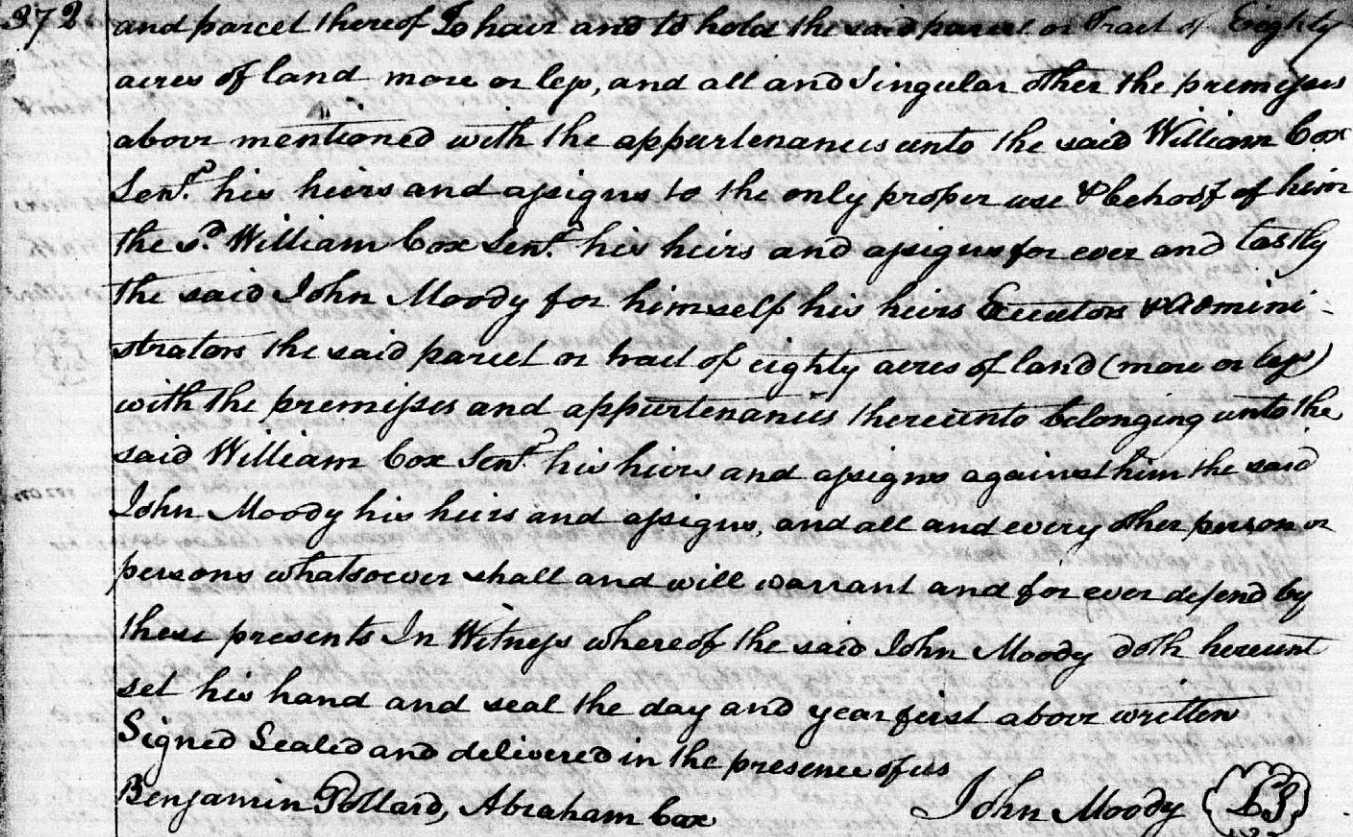 372 and parcel thereof To have and to hold the said parcel or Tract of Eighty
acres of land more or less, and all and Singular other the premisses
above mentioned with the appurtenances unto the said William Cox
Senr. his heirs and assigns to the only proper use & behoof of him
the sd. William Cox Senr. his heirs and assigns for ever and lastly
the said John Moody for himself his heirs Executors & Admini-
strators the said parcel or tract of eighty acres of land (more or less)
with the premisses and appurtenances thereunto belonging unto the
said William Cox Senr. his heirs and assigns against him the said
John Moody his heirs and assigns, and all and every other person or
persons whatsoever shall and will warrant and for ever defend by
these presents In Witness whereof the said John Moody doth hereunt
set his hand and seal the day and year first above written
Signed Sealed and delivered in the presence of us
Benjamin Pollard, Abraham Cox John Moody LS